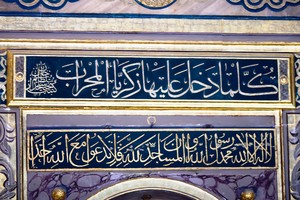 كلما دخل عليها زكريا المحراب
لا إله إلا الله محمد رسول الله وأن المساجد لله فلا تدعوا مع الله أحدا